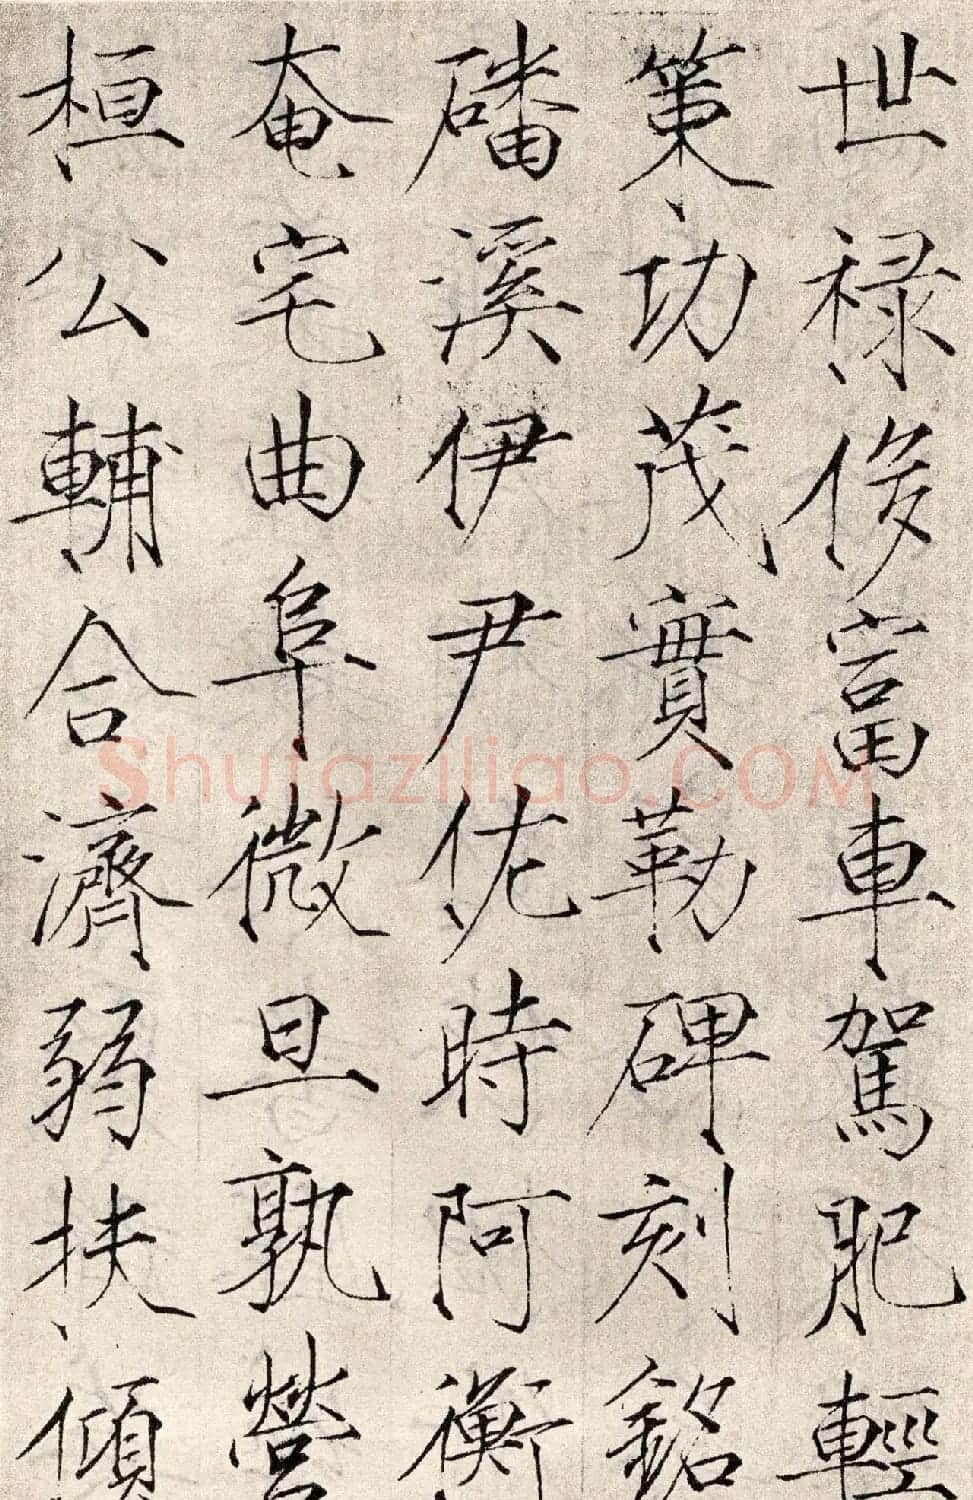 世禄侈富車駕肥輕
策功茂實勒碑刻銘
磻溪伊尹佐時阿衡
奄宅曲阜微旦孰營
桓公輔合濟弱扶傾
Shufaziliao.COM